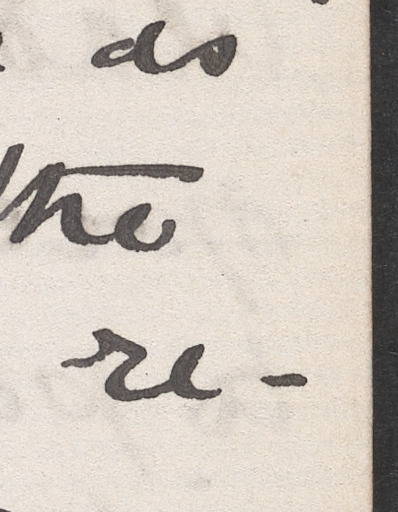 as
the
re-